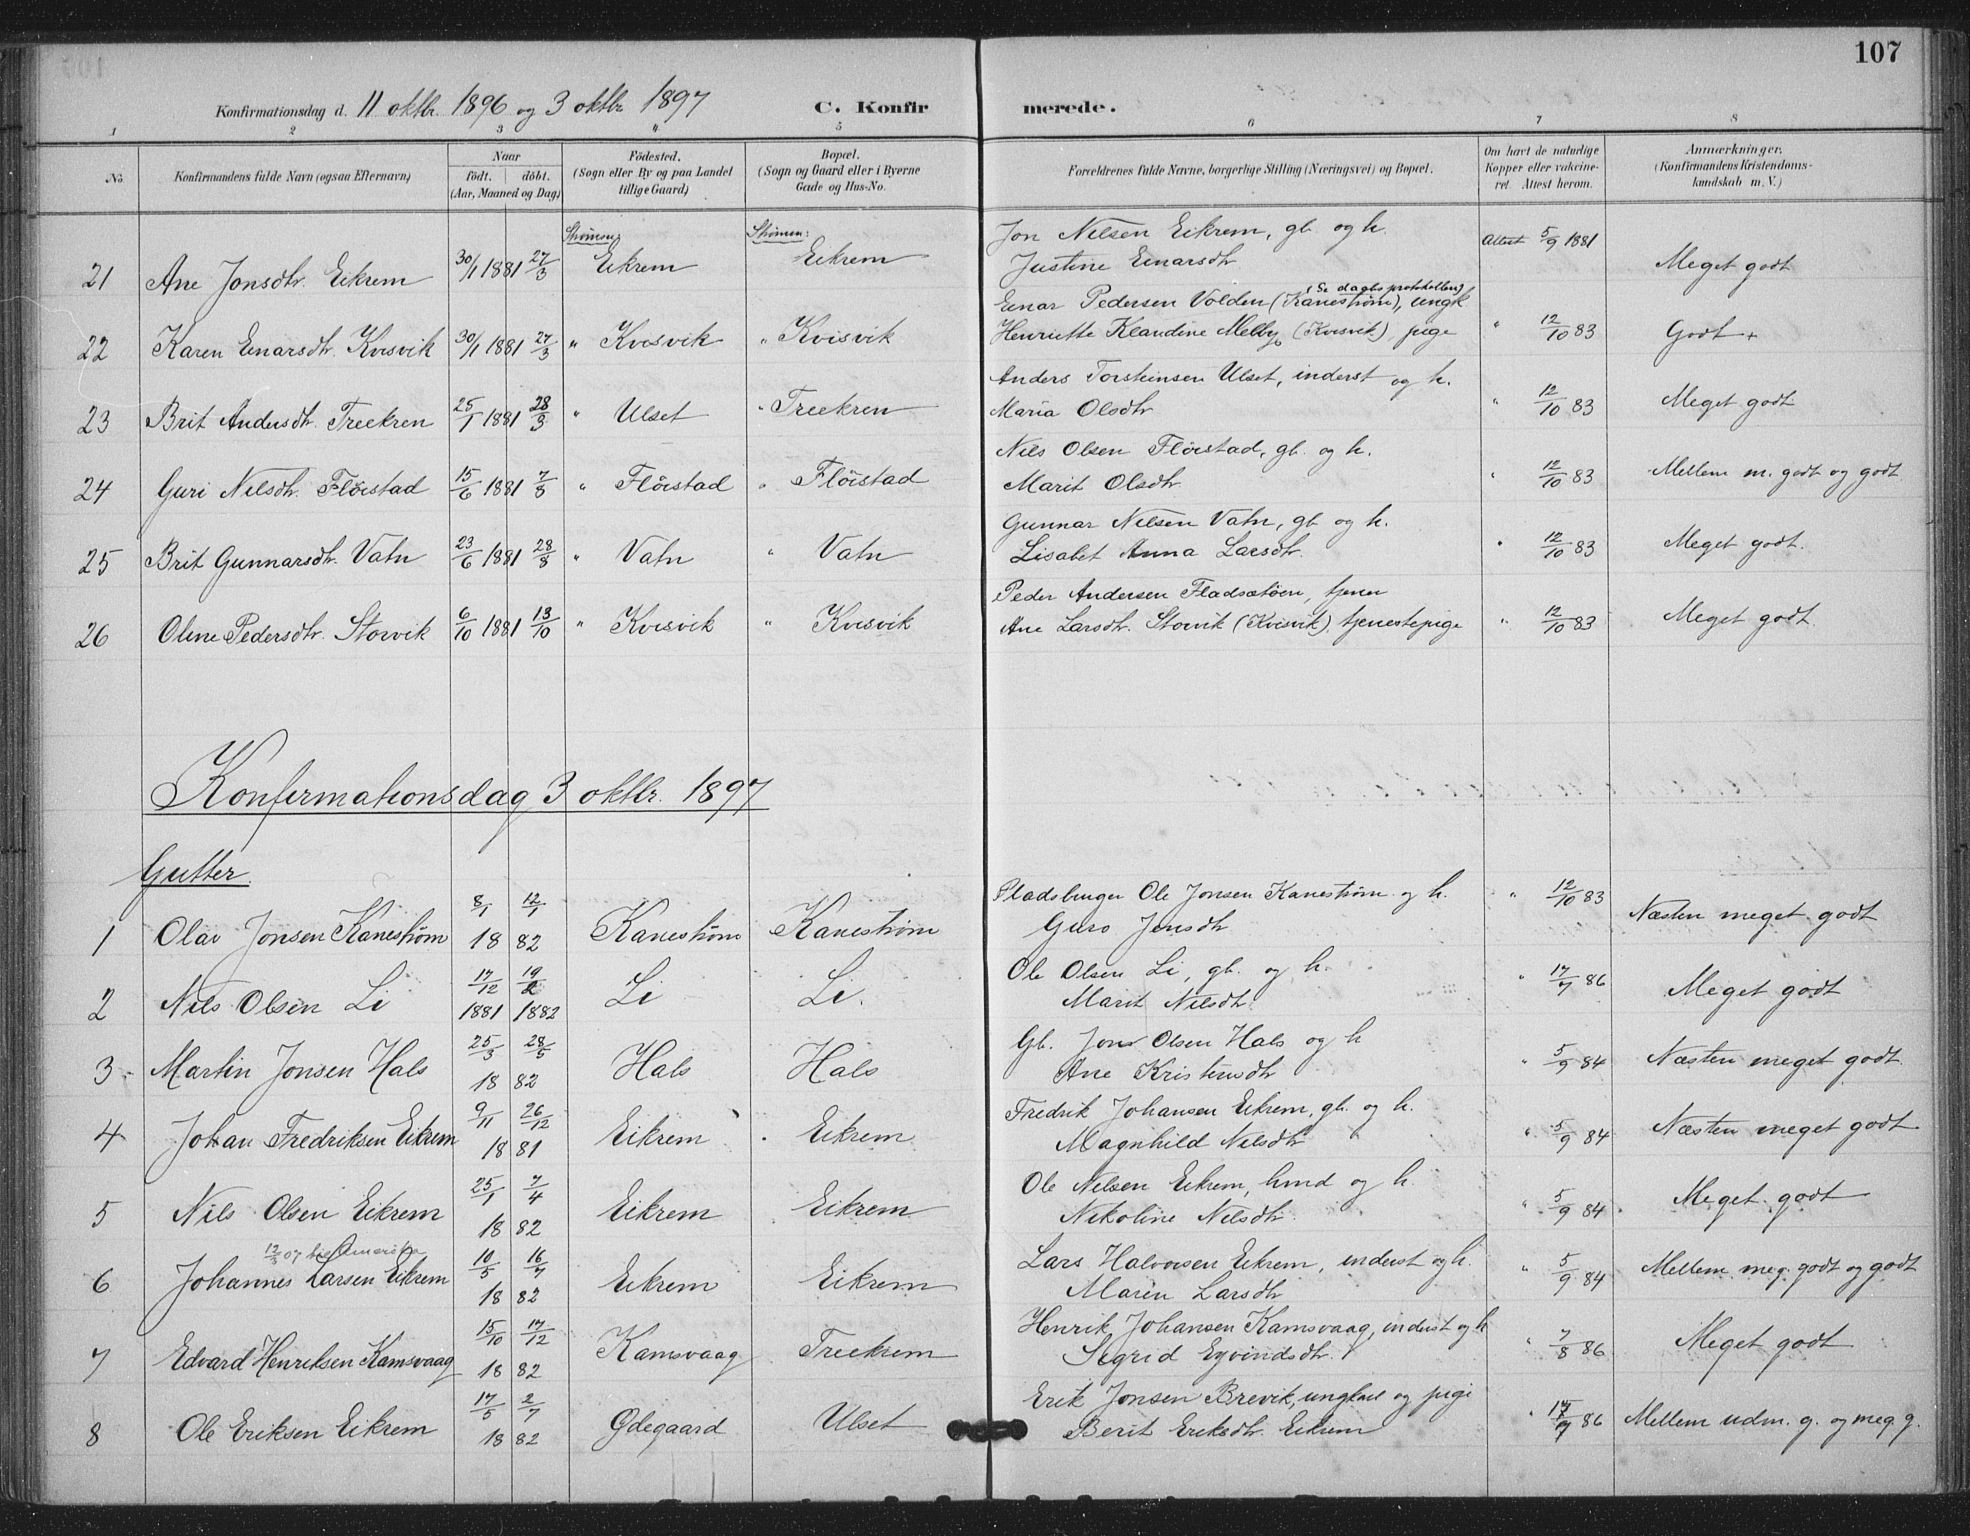 107
Konfirmationsdag d. 11 oktbr. 1896 og 3 oktbr 1897 C. Konfirmerede.
1 2 3 4 5 6 7 8
No. Konfirmandens fulde Navn (ogsaa Efternavn) Naar födt. döbt. (Aar, Maaned og Dag) Födested. (Sogn eller By og paa Landet tillige Gaard) Bopæl. (Sogn og Gaard eller i Byerne Gade og Hus-No. Forældrenes fulde Navne, borgerlige Stilling (Næringsvei) og Bopæl. Om havt de naturlige Kopper eller vakcineret. Attest herom. Anmærkninger. (Konfirmandens Kristendomskundskab m. V.)
21 Ane Jonsdtr. Eikrem 30/1 1881 27/3 Eikrem Eikrem Jon Nilsen Eikrem, gb. og h. Attest 5/9 1881 Meget godt
Justine Einarsdtr
Einar Pedersen Volden (Kanestrøm), ungk. (Se dagbsprotokollen)
22 Karen Einarsdtr. Kvisvik 30/1 1881 27/3 " Kvisvik " Kvisvik Henriette Klaudine Melby (Kvisvik) pige " 12/10 83 Godt +
Anders Torsteinsen Ulset, inderst og h.
23 Brit Andersdtr. Treekren 25/1 1881 28/3 " Ulset " Treekren Maria Olsdtr " 12/10 83 Meget godt
Nils Olsen Flöistad, gb. og h.
24 Guri Nilsdtr. Flöistad 15/6 1881 7/8 " Flöistad " Flöistad Marit Olsdtr " 12/10 83 Mellem m. godt og godt
Gunnar Nilsen Vatn, gb. og h.
25 Brit Gunnarsdtr. Vatn 23/6 1881 28/8 " Vatn " Vatn Lisabet Anna Larsdtr. " 12/10 83 Meget godt.
Peder Andersen Fladsætöen, tjener
26 Oline Pedersdtr. Storvik 6/10 1881 13/10 " Kvisvik " Kvisvik Ane Larsdtr. Storvik (Kvisvik), tjenestepige " 12/10 83 Meget godt.
Konfirmationsdag 3 oktbr. 1897
Gutter.
1 Olav Jonsen Kanestrøm 8/1 12/1 1882 Kanestrøm Kanestrøm Pladsbruger Ole Jonsen Kanestrøm og h. " 12/10 83 Næsten meget godt
Guro Jensdtr
2 Nils Olsen Li 17/12 1881 19/2 1882 Li Li. Ole Olsen Li, gb. og h. " 17/7 86 Meget godt
Marit Nilsdtr
3 Martin Jonsen Hals 25/3 28/5 1882 Hals Hals Gb. Jon Olsen Hals og h " 5/9 84 Næsten meget godt
Ane Kristensdtr
4 Johan Fredriksen Eikrem 9/11 26/12 1881 Eikrem Eikrem Fredrik Johansen Eikrem, gb. og h. " 5/9 84 Næsten meget godt
Magnhild Nilsdtr
5 Nils Olsen Eikrem 25/1 7/4 1882 Eikrem Eikrem Ole Nilsen Eikrem, hmd og h. " 5/9 84 Meget godt
Nikoline Nilsdtr.
07 til Amerika
6 Johannes Larsen Eikrem 10/5 16/7 1882 Eikrem Eikrem Lars Halvorsen Eikrem, inderst og h. " 5/9 84 Mellem meg. godt og godt
Maren Larsdtr
7 Edvard Henriksen Kamsvaag 15/10 17/12 1882 Kamsvaag Treekrem Henrik Johansen Kamsvaag, inderst og h " 7/8 86 Meget godt
Sigrid Eyvindsdtr.
8 Ole Eriksen Eikrem 17/5 2/7 1882 Ødegaard Ulset Erik Jonsen Brevik, ungkar og pige " 17/7 86 Mellem udm. g. og meg. g.
Berit Eriksdtr. Eikrem